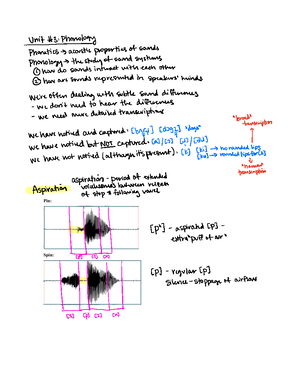 Unit #3: Phonology
Phonetics → acoustic properties of sounds
Phonology → the study of sound systems
① how do sounds interact with each other
② how are sounds represented in speakers' minds
We're often dealing with subtle sound differences
- we don't need to hear the differences
- we need more detailed transcriptions
"broad" transcription
we have noticed and captured •
"dogs"
we have noticed but NOT captured •
we have not noticed (although it's present) •
→ no rounded lips
→ rounded lips
"narrow" transcription
Aspiration
aspiration - period of extended
voicelessness between release
of stop & following vowel
Pin:
[pʰ] - aspirated [p] -
extra "puff of air"
Spin:
[p] - regular [p]
silence - stoppage of airflow